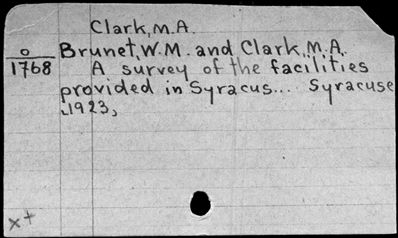 Clark, M.A.
o
1768
Brunet, W.M. and Clark, M.A.
A survey of the facilities
provided in Syracus... Syracuse
1923,
x+